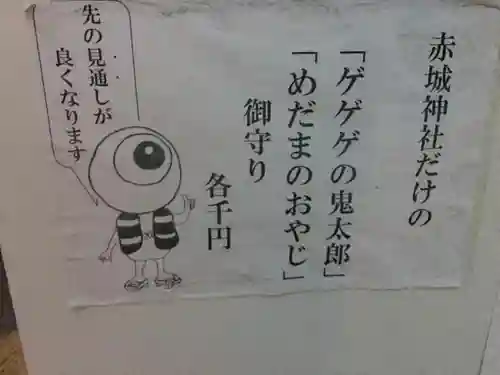 赤城神社だけの
「ゲゲゲの鬼太郎」
「めだまのおやじ」
御守り
各千円
先の見通しが
良くなります